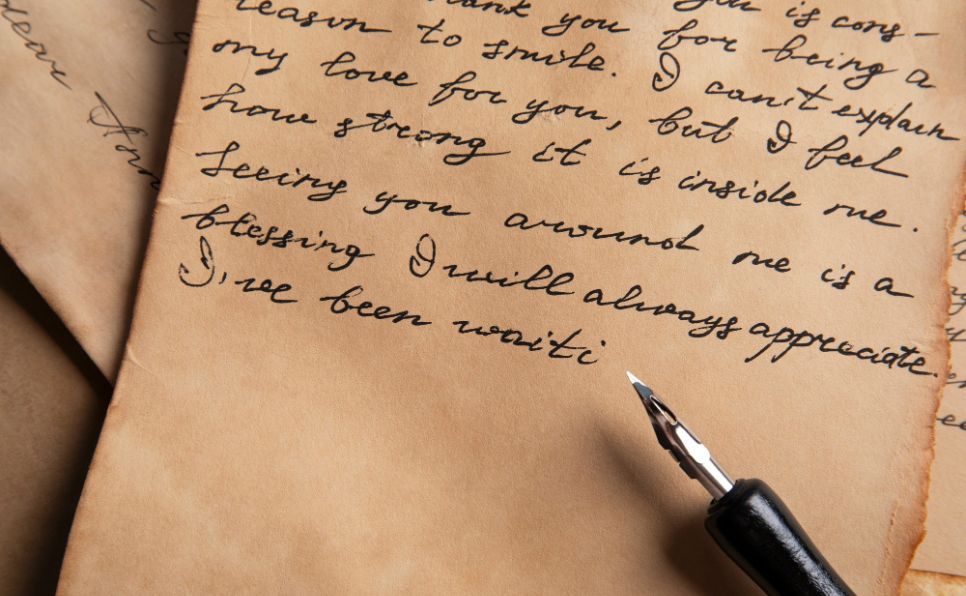 dear Ann
you is cons-
thank you for being a
reason to smile. I can't explain
my love for you, but I feel
how strong it is inside me.
Seeing you around me is a
blessing I will always appreciate.
I've been writi